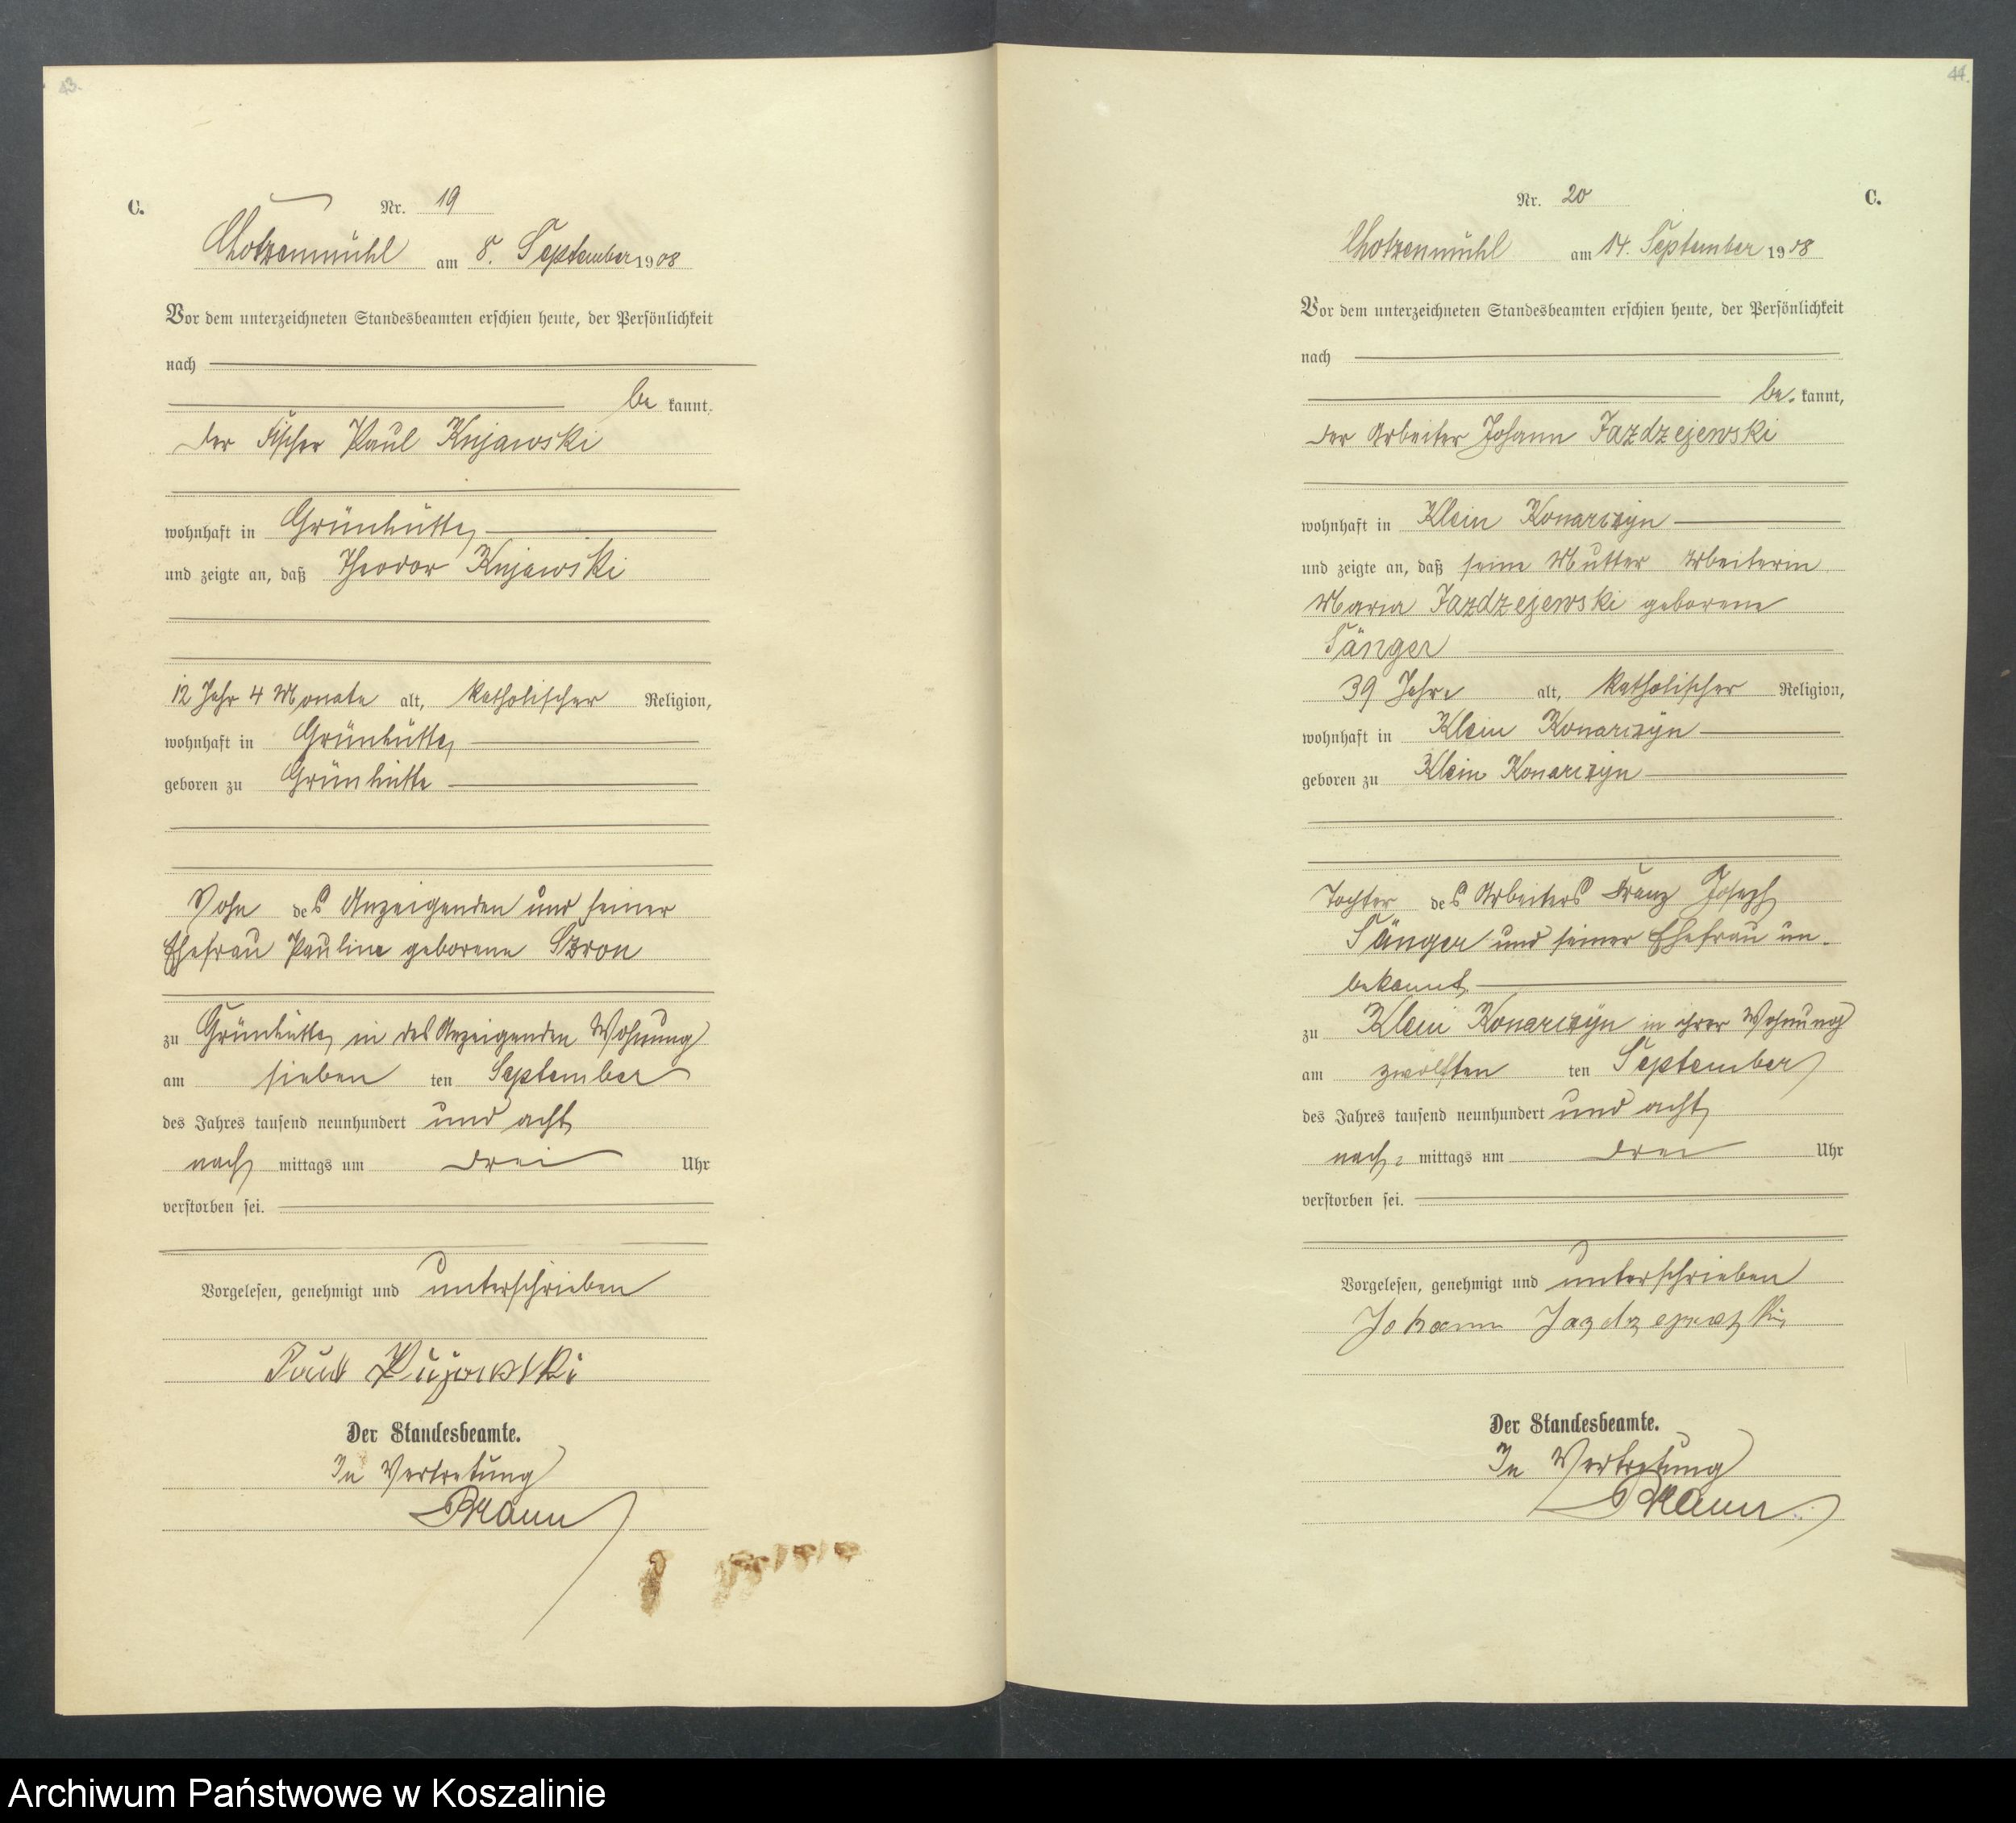 43.
C.
Nr. 19
Chotzenmühl am 8. September 1908
Vor dem unterzeichneten Standesbeamten erschien heute, der Persönlichkeit
nach
be kannt,
der Fischer Paul Kujawski
wohnhaft in Grünhütte
und zeigte an, daß Theodor Kujawski
12 Jahr 4 Monate alt, katholischer Religion,
wohnhaft in Grünhütte
geboren zu Grünhütte
Sohn des Anzeigenden und seiner
Ehefrau Pauline geborene
zu Grünhütte in des Anzeigenden Wohnung
am sieben ten September
des Jahres tausend neunhundert und acht
nach mittags um drei Uhr
verstorben sei.
Vorgelesen, genehmigt und unterschrieben
Paul Kujawski
Der Standesbeamte.
In Vertretung
44.
Nr. 20
C.
Chotzenmühl am 14. September 1908
Vor dem unterzeichneten Standesbeamten erschien heute, der Persönlichkeit
nach
be- kannt,
der Arbeiter Johann Jazdzejewski
wohnhaft in Klein Konarczyn
und zeigte an, daß seine Mutter Arbeiterin
Maria Jazdzejewski geborene
Sänger
39 Jahre alt, katholischer Religion,
wohnhaft in Klein Konarczyn
geboren zu Klein Konarczyn
Tochter des Arbeiters Franz Joseph
Sänger und seiner Ehefrau un-
bekannt
zu Klein Konarczyn in ihrer Wohnung
am zwölften ten September
des Jahres tausend neunhundert und acht
nach- mittags um drei Uhr
verstorben sei.
Vorgelesen, genehmigt und unterschrieben
Johann Jazdzejewski
Der Standesbeamte.
In Vertretung
Archiwum Państwowe w Koszalinie